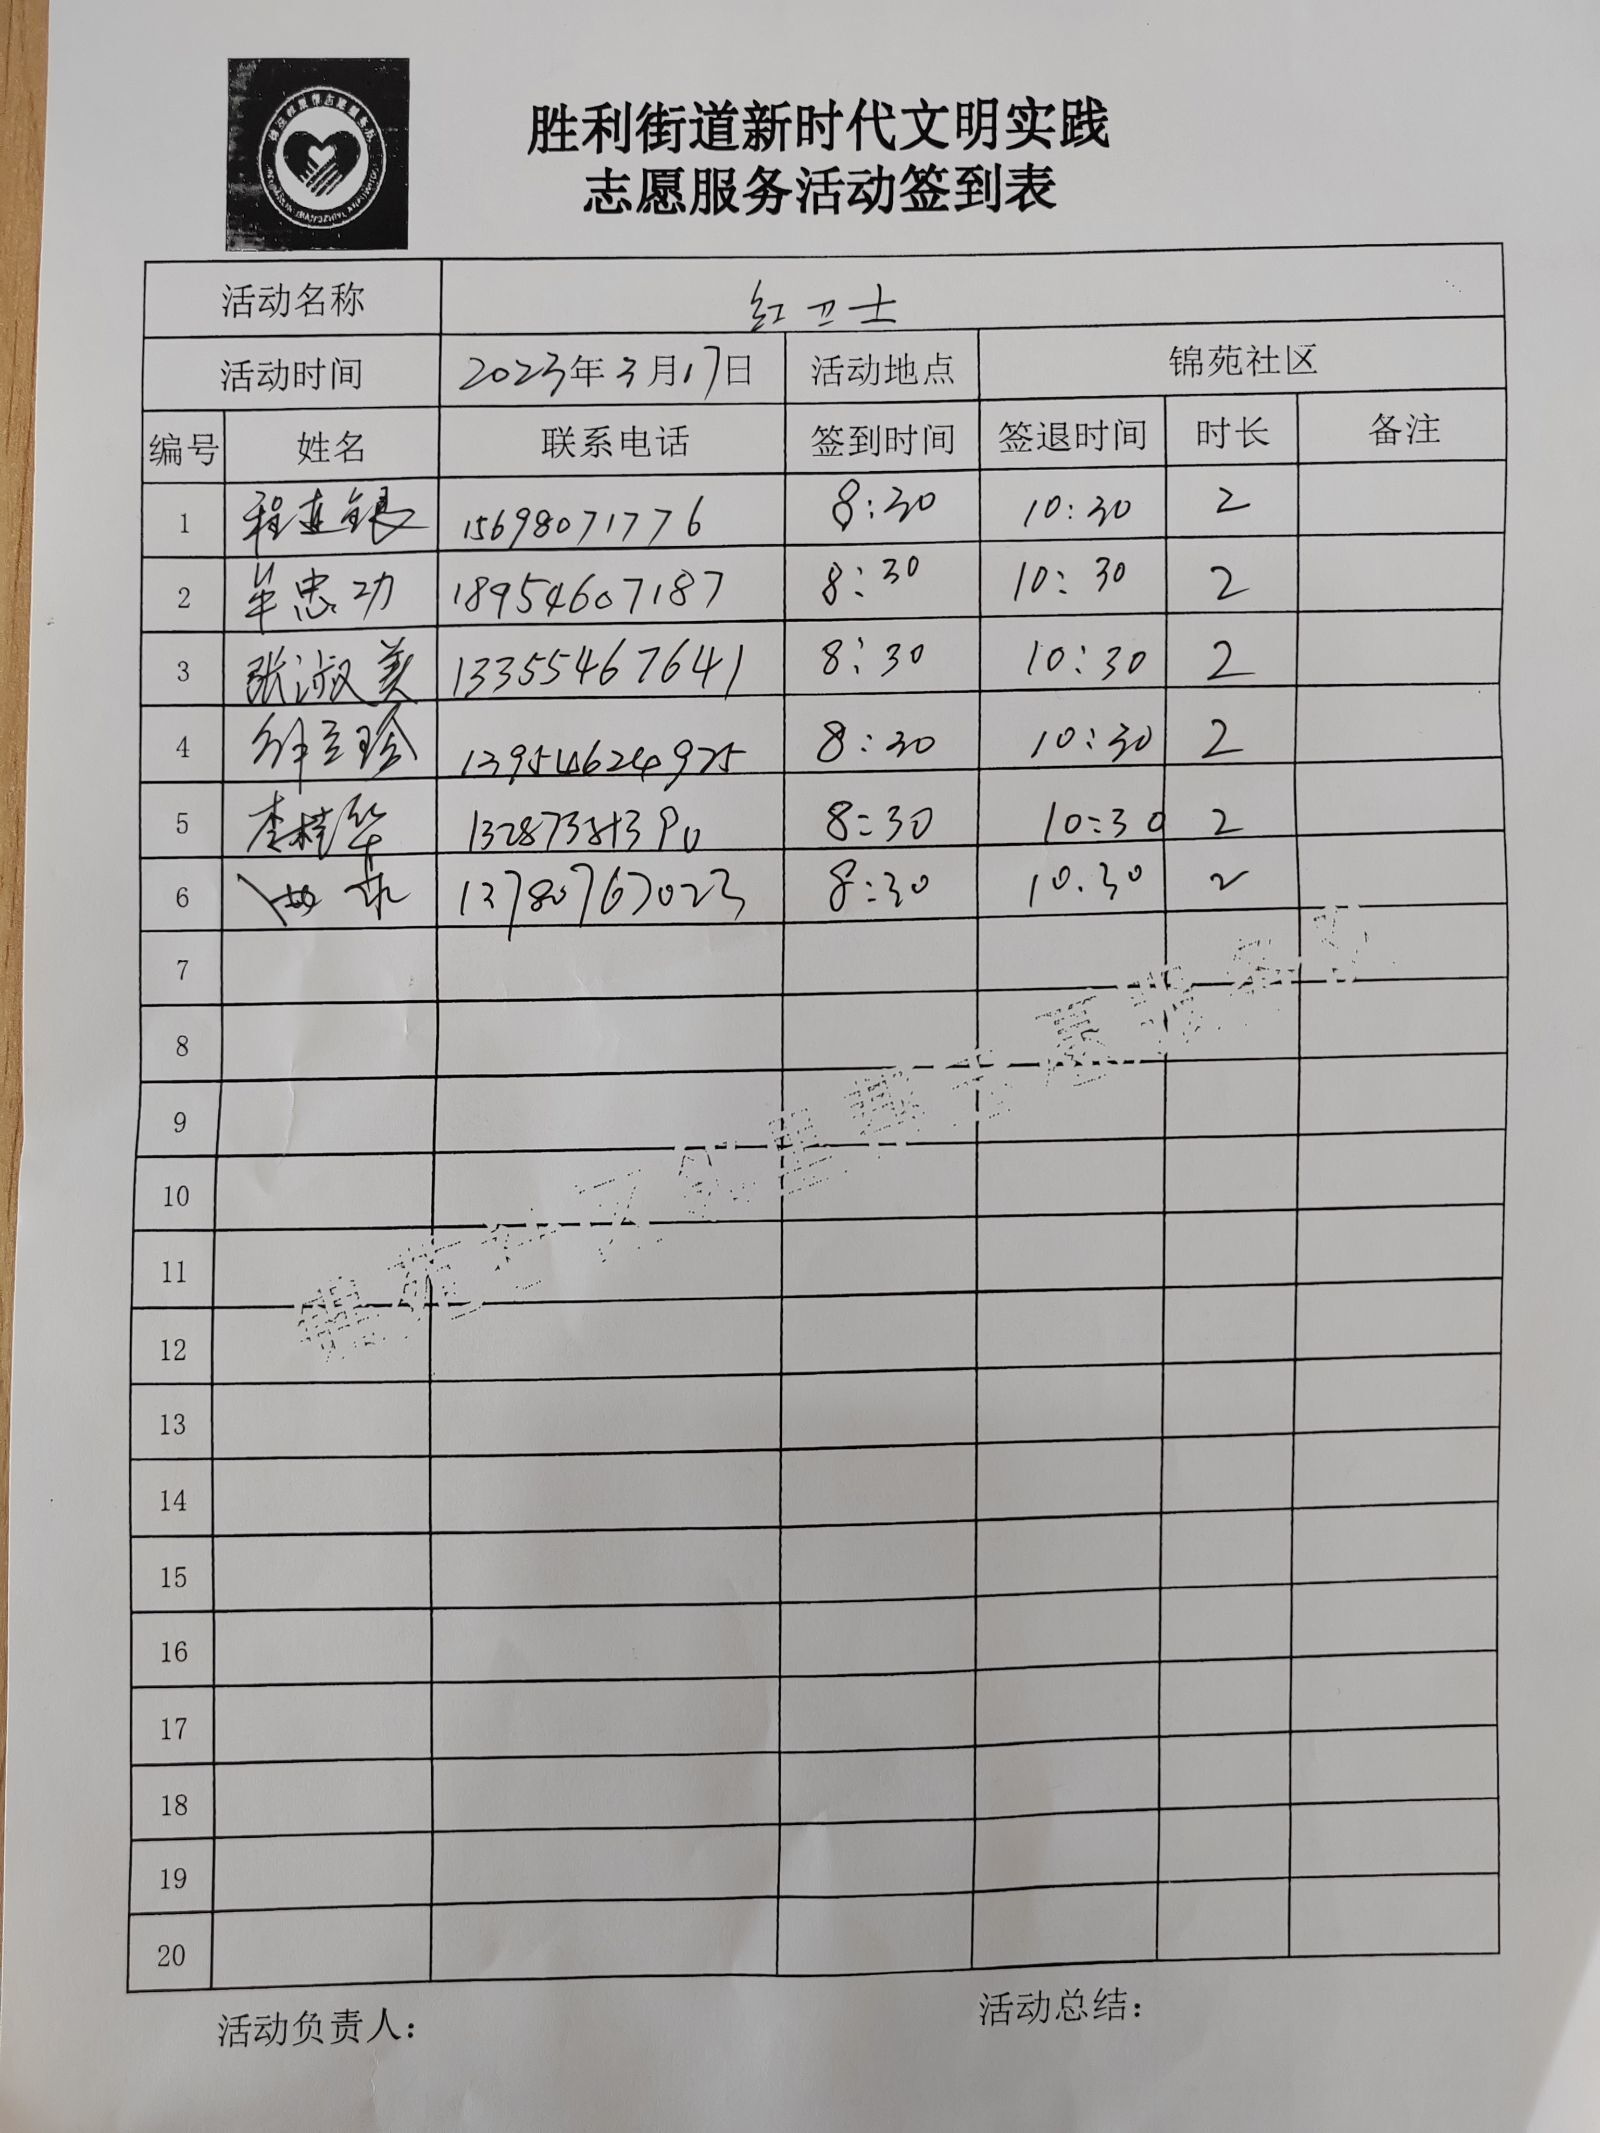 胜利街道新时代文明实践
志愿服务活动签到表
活动名称 红卫士
活动时间 2023年3月17日 活动地点 锦苑社区
编号 姓名 联系电话 签到时间 签退时间 时长 备注
1 程连银 15698071776 8:30 10:30 2
2 牟忠功 18954607187 8:30 10:30 2
3 张淑美 13355467641 8:30 10:30 2
4 13954624975 8:30 10:30 2
5 李桂华 8:30 10:30 2
6 13780767023 8:30 10.30 2
7
8
9
10
11
12
13
14
15
16
17
18
19
20
活动负责人： 活动总结：